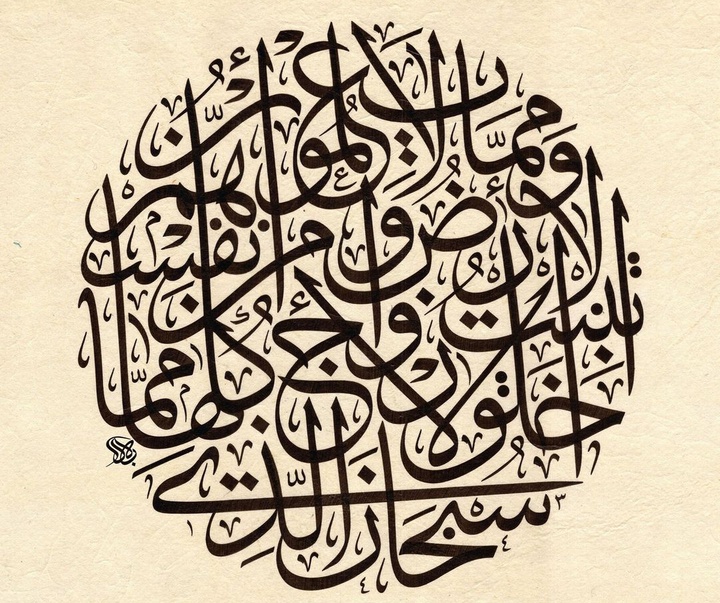 سبحان الذي
خلق الأزواج كلها مما
تنبت الأرض ومن أنفسهم
ومما لا يعلمون